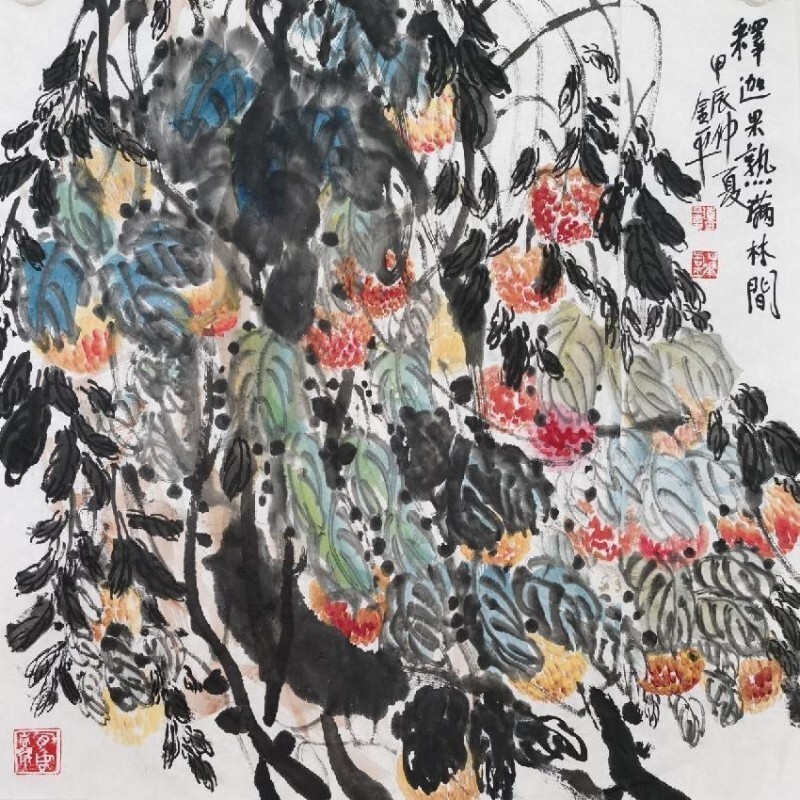 釋迦果熟滿林間
甲辰仲夏
金平